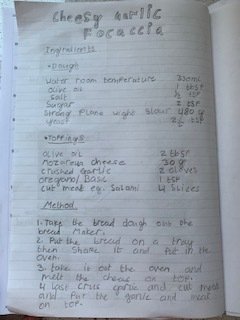 Cheesy Garlic
Focaccia
Ingridients
• Dough
Water room temperature 330ml
olive oil 1 tbsp
Salt ½ tsp
Sugar 2 tsp
Strong Plane wight flour 480 gr
Yeast 2½ tsp
• Toppings
Olive oil 2 tbsp
Mozarella cheese 30 gr
Crushed Garlic 2 cloves
oregano/Basil 1 tsp
Cut meat eg. Salami 4 slices
Method
1. Take the bread dough out the
bread Maker.
2. Put the bread on a tray
then shape it and put in the
oven.
3. take it out the oven and
melt the cheese on top.
4 last crus garlic and cut meat
and put the garlic and meat
on top.